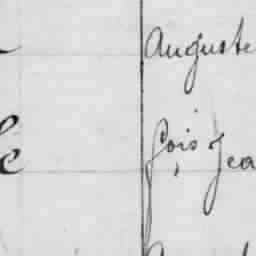 Auguste
fçois Jea